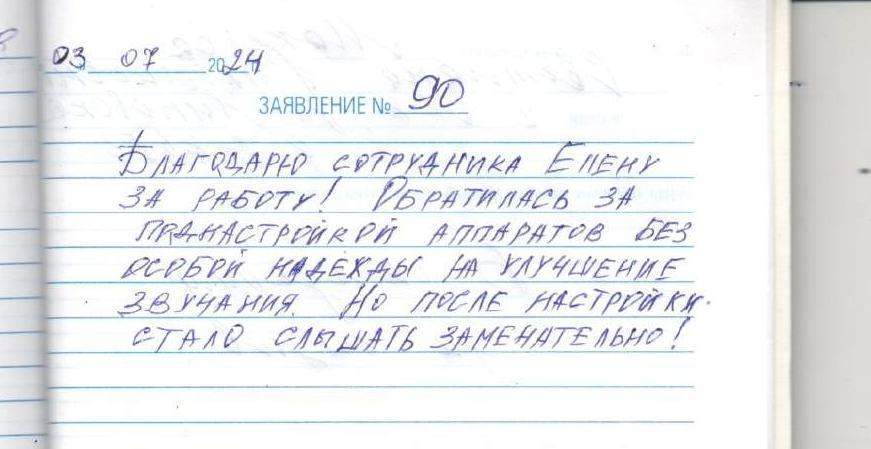 03 07 2024
ЗАЯВЛЕНИЕ № 90
Благодарю сотрудника Елену
за работу! Обратилась за
поднастройкой аппаратов без
особой надежды на улучшение
звучания. Но после настройки
стало слышать заменательно!